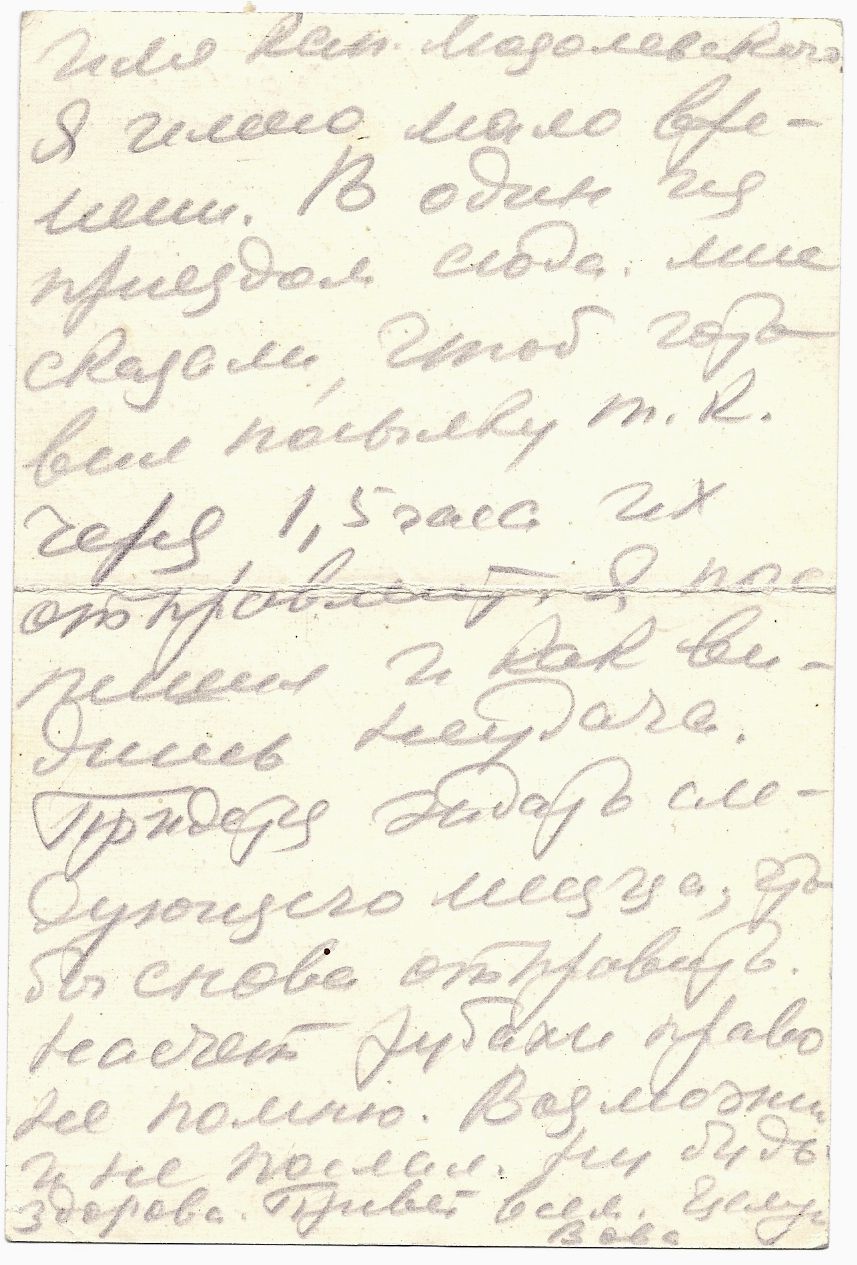 имя кап. Модолевского
Я имею мало вре-
мени. В один из
приездом сюда. мне
сказали, чтоб гото
вил посылку т.к.
через 1,5 часа их
отправляют. Я пос
пешил и как ви-
дишь неудача.
Придется ждать сле-
дующего месяца, что
бы снова отправить.
насчет рубахи право
не помню. Возможно
и не послал. Ну будь
здорова. Привет всем. Целую
Вова